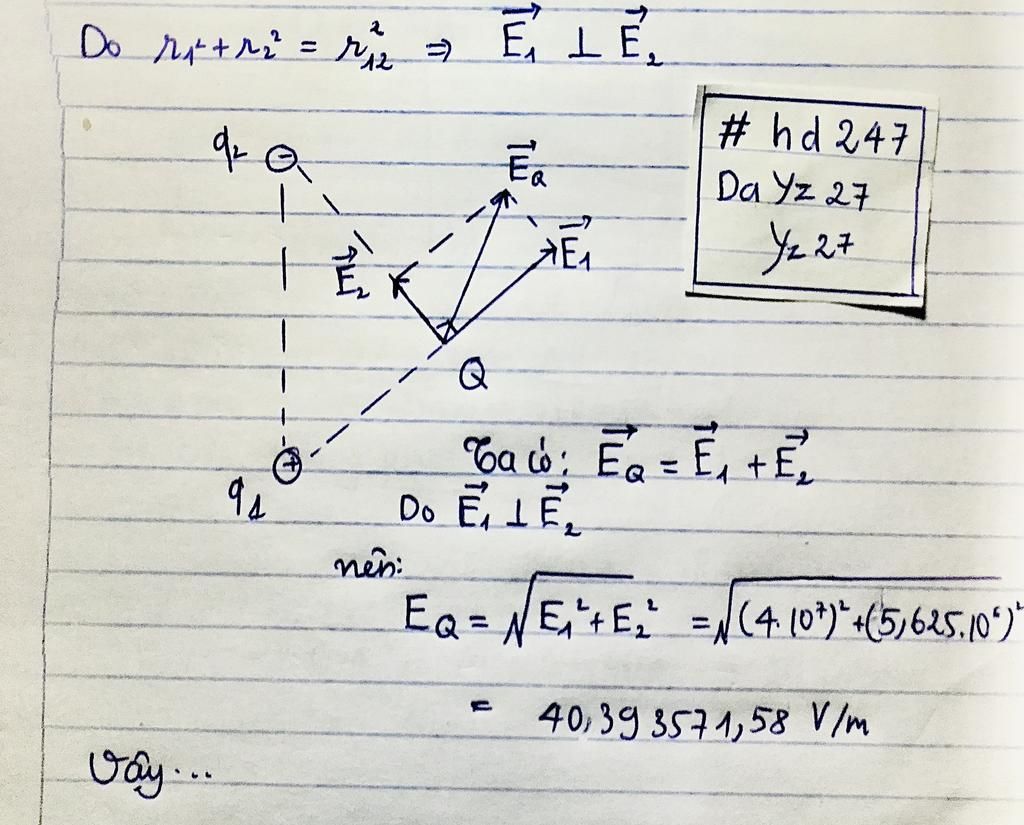 Do r₁² + r₂² = r₁₂² ⇒ E₁⃗ ⊥ E₂⃗
# hd 247
Da Yz 27
Yz 27
q₂ ⊖
E_Q⃗
E₁⃗
E₂⃗
Q
⊕
q₁
Ta có: E_Q⃗ = E₁⃗ + E₂⃗
Do E₁⃗ ⊥ E₂⃗
nên:
E_Q = √(E₁² + E₂²) = √((4.10⁷)² + (5,625.10⁶)²)
= 40,393571,58 V/m
Vây...